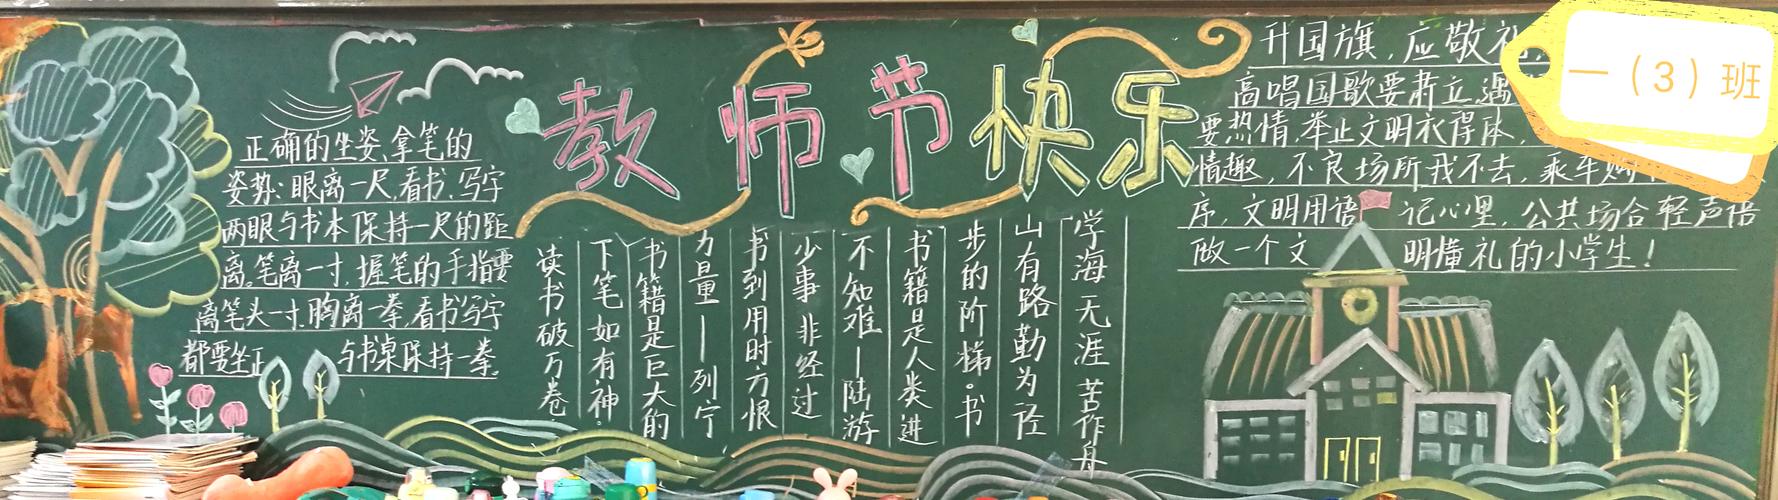 教师节快乐
正确的坐姿、拿笔的
姿势:眼离一尺,看书、写字
两眼与书本保持一尺的距
离。笔离一寸,握笔的手指要
离笔头一寸,胸离一拳,看书写字
都要坐正 与书桌保持一拳。
读书破万卷
下笔如有神。
书籍是巨大的
力量—列宁
书到用时方恨
少事非经过
不知难—陆游
书籍是人类进
步的阶梯。书
山有路勤为径
学海无涯苦作舟
升国旗,应敬礼
高唱国歌要肃立,遇
要热情,举止文明衣得体,
情趣,不良场所我不去,乘车购
序,文明用语 记心里,公共场合轻声语
做一个文 明懂礼的小学生!
一(3)班